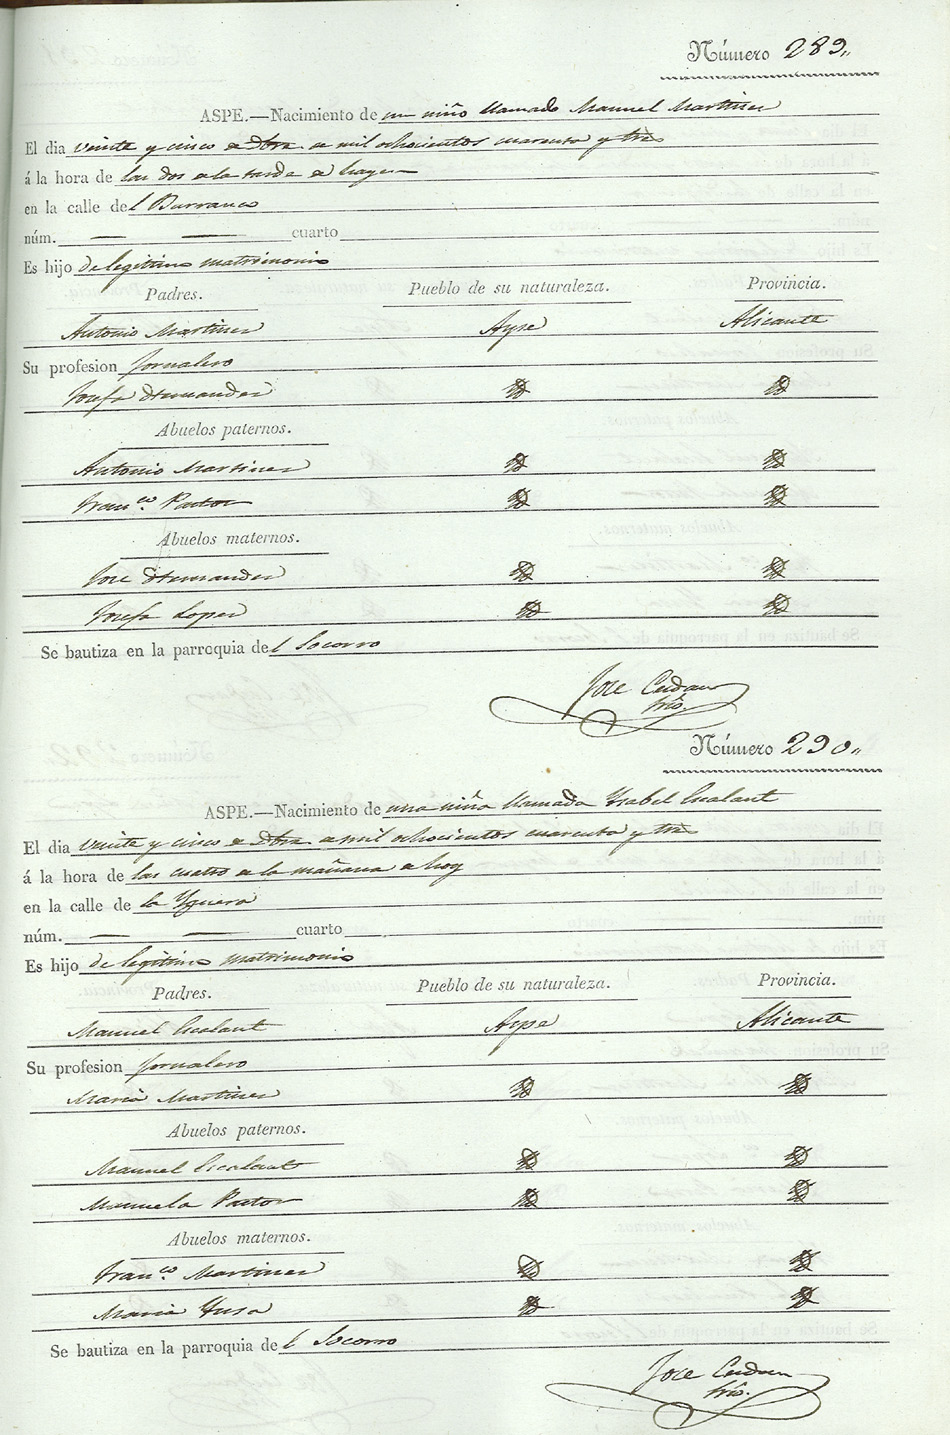 Número 289.
ASPE.—Nacimiento de un niño llamado Manuel Martinez
El dia veinte y cinco de Obre. de mil ochocientos cuarenta y tres
á la hora de las dos de la tarde de hayer
en la calle del Barranco
núm. — — cuarto
Es hijo de legitimo matrimonio
Padres. Pueblo de su naturaleza. Provincia.
Antonio Martinez Aspe Alicante
Su profesion Jornalero
Josefa Hernandez
Abuelos paternos.
Antonio Martinez
Franco. Pastor
Abuelos maternos.
Jose Hernandez
Josefa Lopez
Se bautiza en la parroquia del Socorro
Jose Cerdan
Srio.
Número 290.
ASPE.—Nacimiento de una niña llamada Ysabel Escalant
El dia veinte y cinco de Obre de mil ochocientos cuarenta y tres
á la hora de las cuatro de la mañana de hoy
en la calle de la Yguera
núm. — — cuarto
Es hijo de legitimo matrimonio
Padres. Pueblo de su naturaleza. Provincia.
Manuel Escalant Aspe Alicante
Su profesion Jornalero
Maria Martinez
Abuelos paternos.
Manuel Escalant
Manuela Pastor
Abuelos maternos.
Franco. Martinez
Maria
Se bautiza en la parroquia del Socorro
Jose Cerdan
Srio.